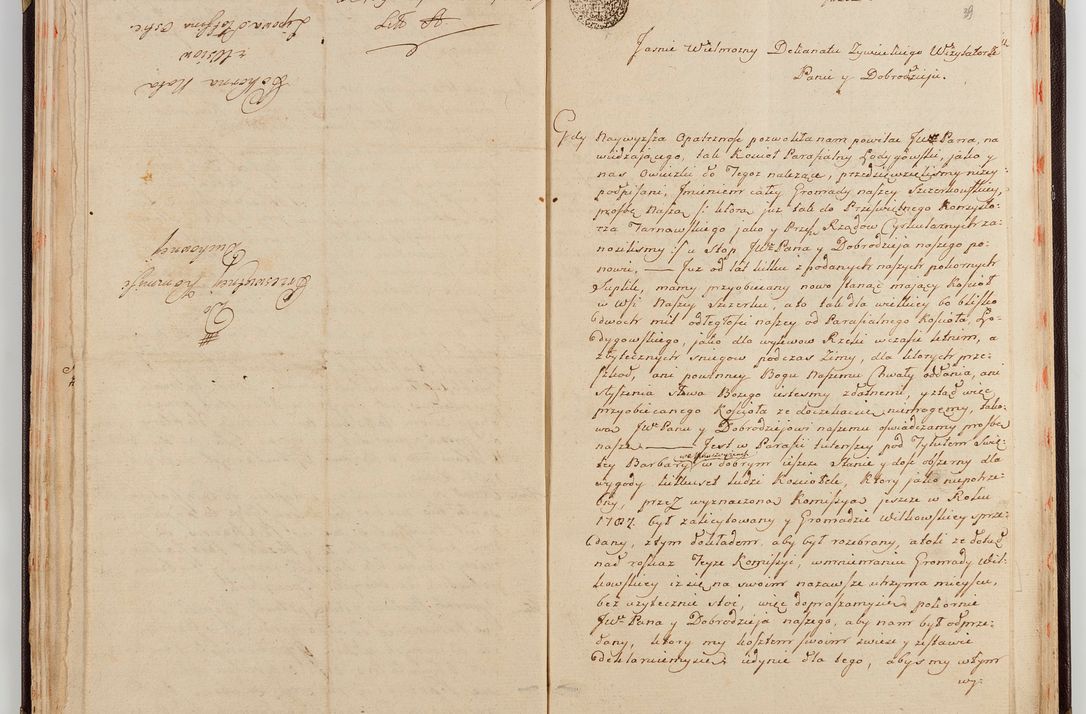 39
Jaśnie Wielmozny Dekanatu Zywieckiego Wizytatorze
Panie y Dobrodzieju.
Gdy Naywyzsza Opatrznośc pozwoliła nam powitac JWgo Pana, na
wiedzaiącego, tak Kościoł Parafialny Łodygowski, jako y
nas Owieczki do Tegoz nalezące, przedsięwzieliśmy nizy
podpisani, Jmieniem całey Gromady naszey Szczerkowskiey,
prośbę Naszą /: która juz tak do Prześwietnego Konzysto-
rza Tarnawskiego jako y Prześ: Rządow Cyrkularnych za-
nosiliśmy :/ u Stop JWgo Pana y Dobrodzieja naszego po-
nowic. — Juz od lat kilku z podanych naszych pokornych
Suplik, mamy przyobiecany nowo stanąc maiący Kościoł
w Wsi Naszey Szczerku, a to tak dla wielkiey bo blisko
dwoch mil odległości naszey od Parafialnego Kościoła, Ło-
dygowskiego, jako dla wylewow Rzeki w czasie letnim, a
zbytecznych sniegow podczas Zimy, dla ktorych prze-
szkod, ani powinney Bogu Naszemu Chwały oddania, ani
słyszenia słowa Bozego iestesmy zdatnemi, y ztąd więc
przyobiecanego Kościoła ze doczekac sie niemozemy, tako-
wą JWgo Panu y Dobrodziejowi naszemu oświadczamy prośbę
naszą — Jest w Parafii tutenszey pod Tytułem Swię-
tey Barbary w Wilkowicach w dobrym ieszcze Stanie y dośc obszerny dla
wygody kilkuset ludzi Kościołek, Ktory jako niepotrze-
bny, przez wyznaczoną Komissyą jeszcze w Roku
1787. był zalicytowany y Gromadzie Wilkowskiey sprze-
dany, z tym dokładem, aby był rozebrany, a toli ze dotąd
nad roskaz Teyze Komissyi, w mniemaniu Gromady Wil-
kowskiey iz się na swoim na zawsze utrzyma mieyscu,
bez uzytecznie stoi, więc dopraszamy się pokornie
JWgo Pana y Dobrodzieja naszego, aby nam był odprze-
dany, ktory my kosztem swoim zwieźc y zestawic
deklaruiemy się iedynie dla tego, abysmy w tym
wy-
Pokorna Nota
z Wsiow
Do
Prześwietney Kommissyi
Duchowney